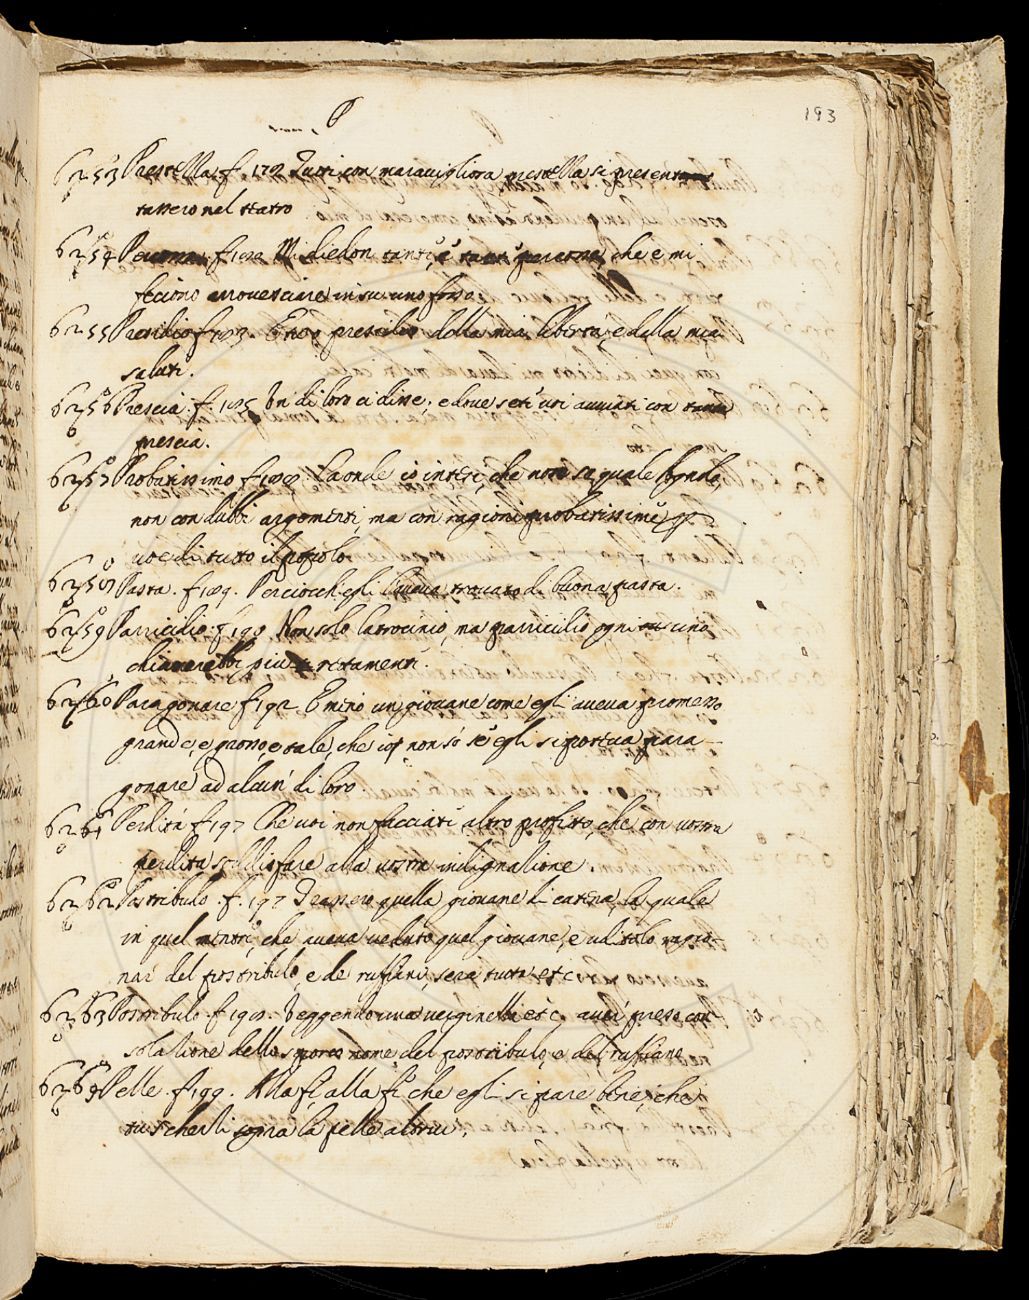 P
193
6253 Prestella. f. 178 Tutti con maravigliosa prestella si presen
tassero nel teatro
6254 f 182 Mi diedon tanti, e che e mi
feciono arrovesciare in su uno forse
6255 Presidio f 183. Ecco presidio della mia liberta, e della mia
saluti.
6256 Prescia. f. 185 Un di loro ci disse; e dove seti voi avviati con tanta
prescia.
6257 Probatissimo f 188 Laonde io intesi, che non so quale
non con dubbi argomenti, ma con ragioni probatissime
voce di tutto il popolo
6258 Pasta. f 189. Perciocch egli l'aveva trovato di buona pasta.
6259 Parricidio. f 190 Non solo latrocinio, ma parricidio ogni
chiamarebbi piu rettamenti.
6260 Paragonare f 192 E meno un giovane come egli aveva promesso
grande, e prono, e tale, che io non so se egli si poteva para
gonare ad alcun di loro
6261 Perdita f 197 Che voi non facciati altro profitto, che con vostra
perdita soddisfare alla vostra indignatione.
6262 Postribulo. f. 197 Trassero quella giovane di catena, la quale
in quel mentre, che aveva veduto quel giovane, e uditolo ragio
nar del postribulo, e de ruffiani, sera tutta etc
6263 Postribulo. f 198. Veggendo una verginella etc. aver preso con
solatione dello sporco nome del postribulo, e del ruffiano
6264 Pelle. f 199. Alla fi, alla fi che egli si pare bene, che
tu scherli sopra la pelle altrui.